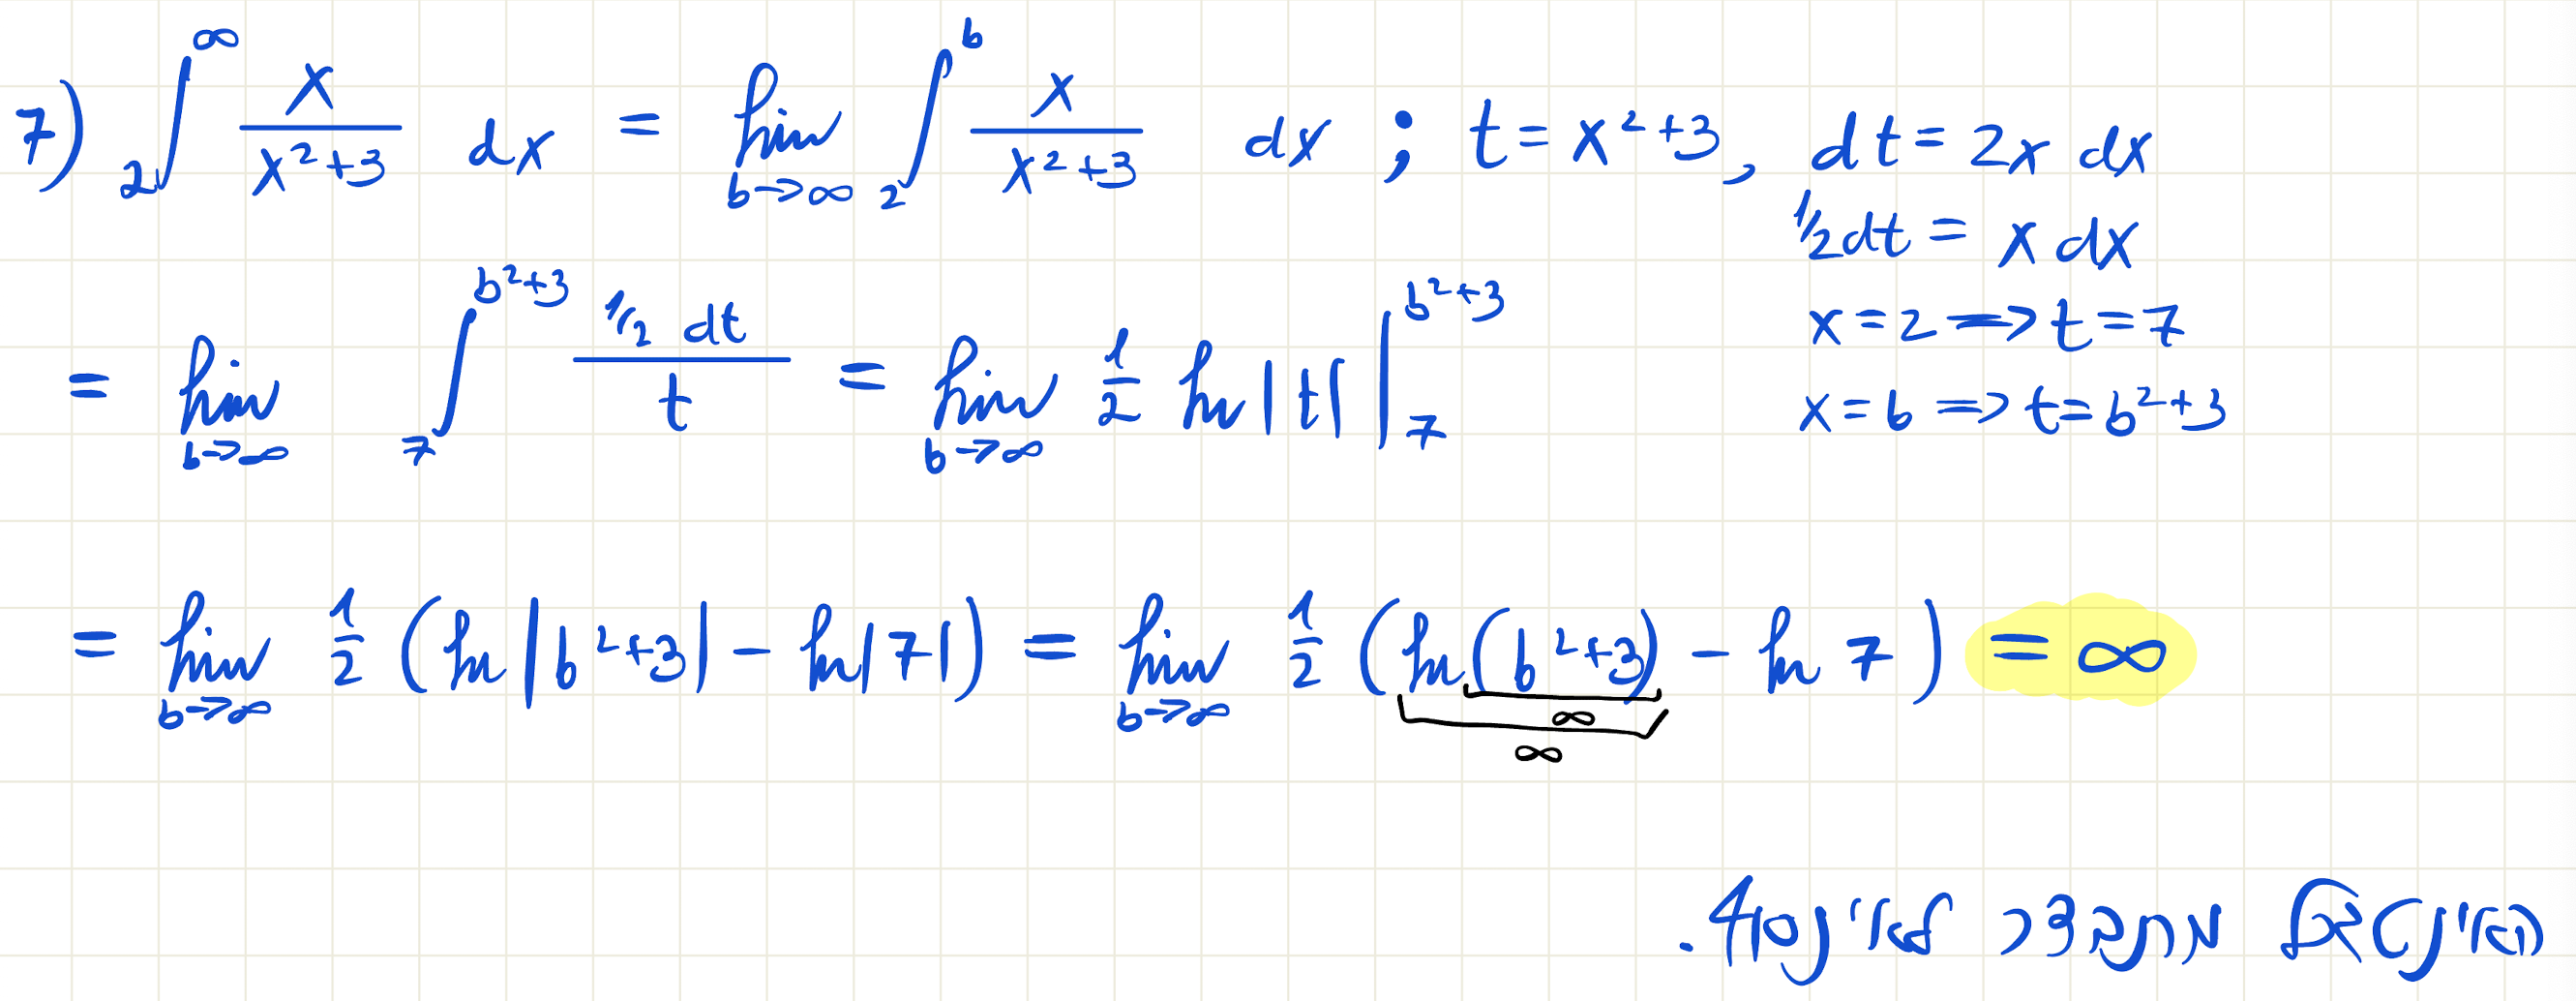 7) ∫₂^∞ x/(x²+3) dx = lim_{b→∞} ∫₂^b x/(x²+3) dx ; t = x²+3, dt = 2x dx
½dt = x dx
x = 2 ⟹ t = 7
x = b ⟹ t = b²+3
= lim_{b→∞} ∫₇^{b²+3} (½ dt)/t = lim_{b→∞} ½ ln|t| |₇^{b²+3}
= lim_{b→∞} ½ (ln|b²+3| − ln|7|) = lim_{b→∞} ½ (ln(b²+3) − ln 7) = ∞
∞
∞
האינטגרל מתבדר לאינסוף.